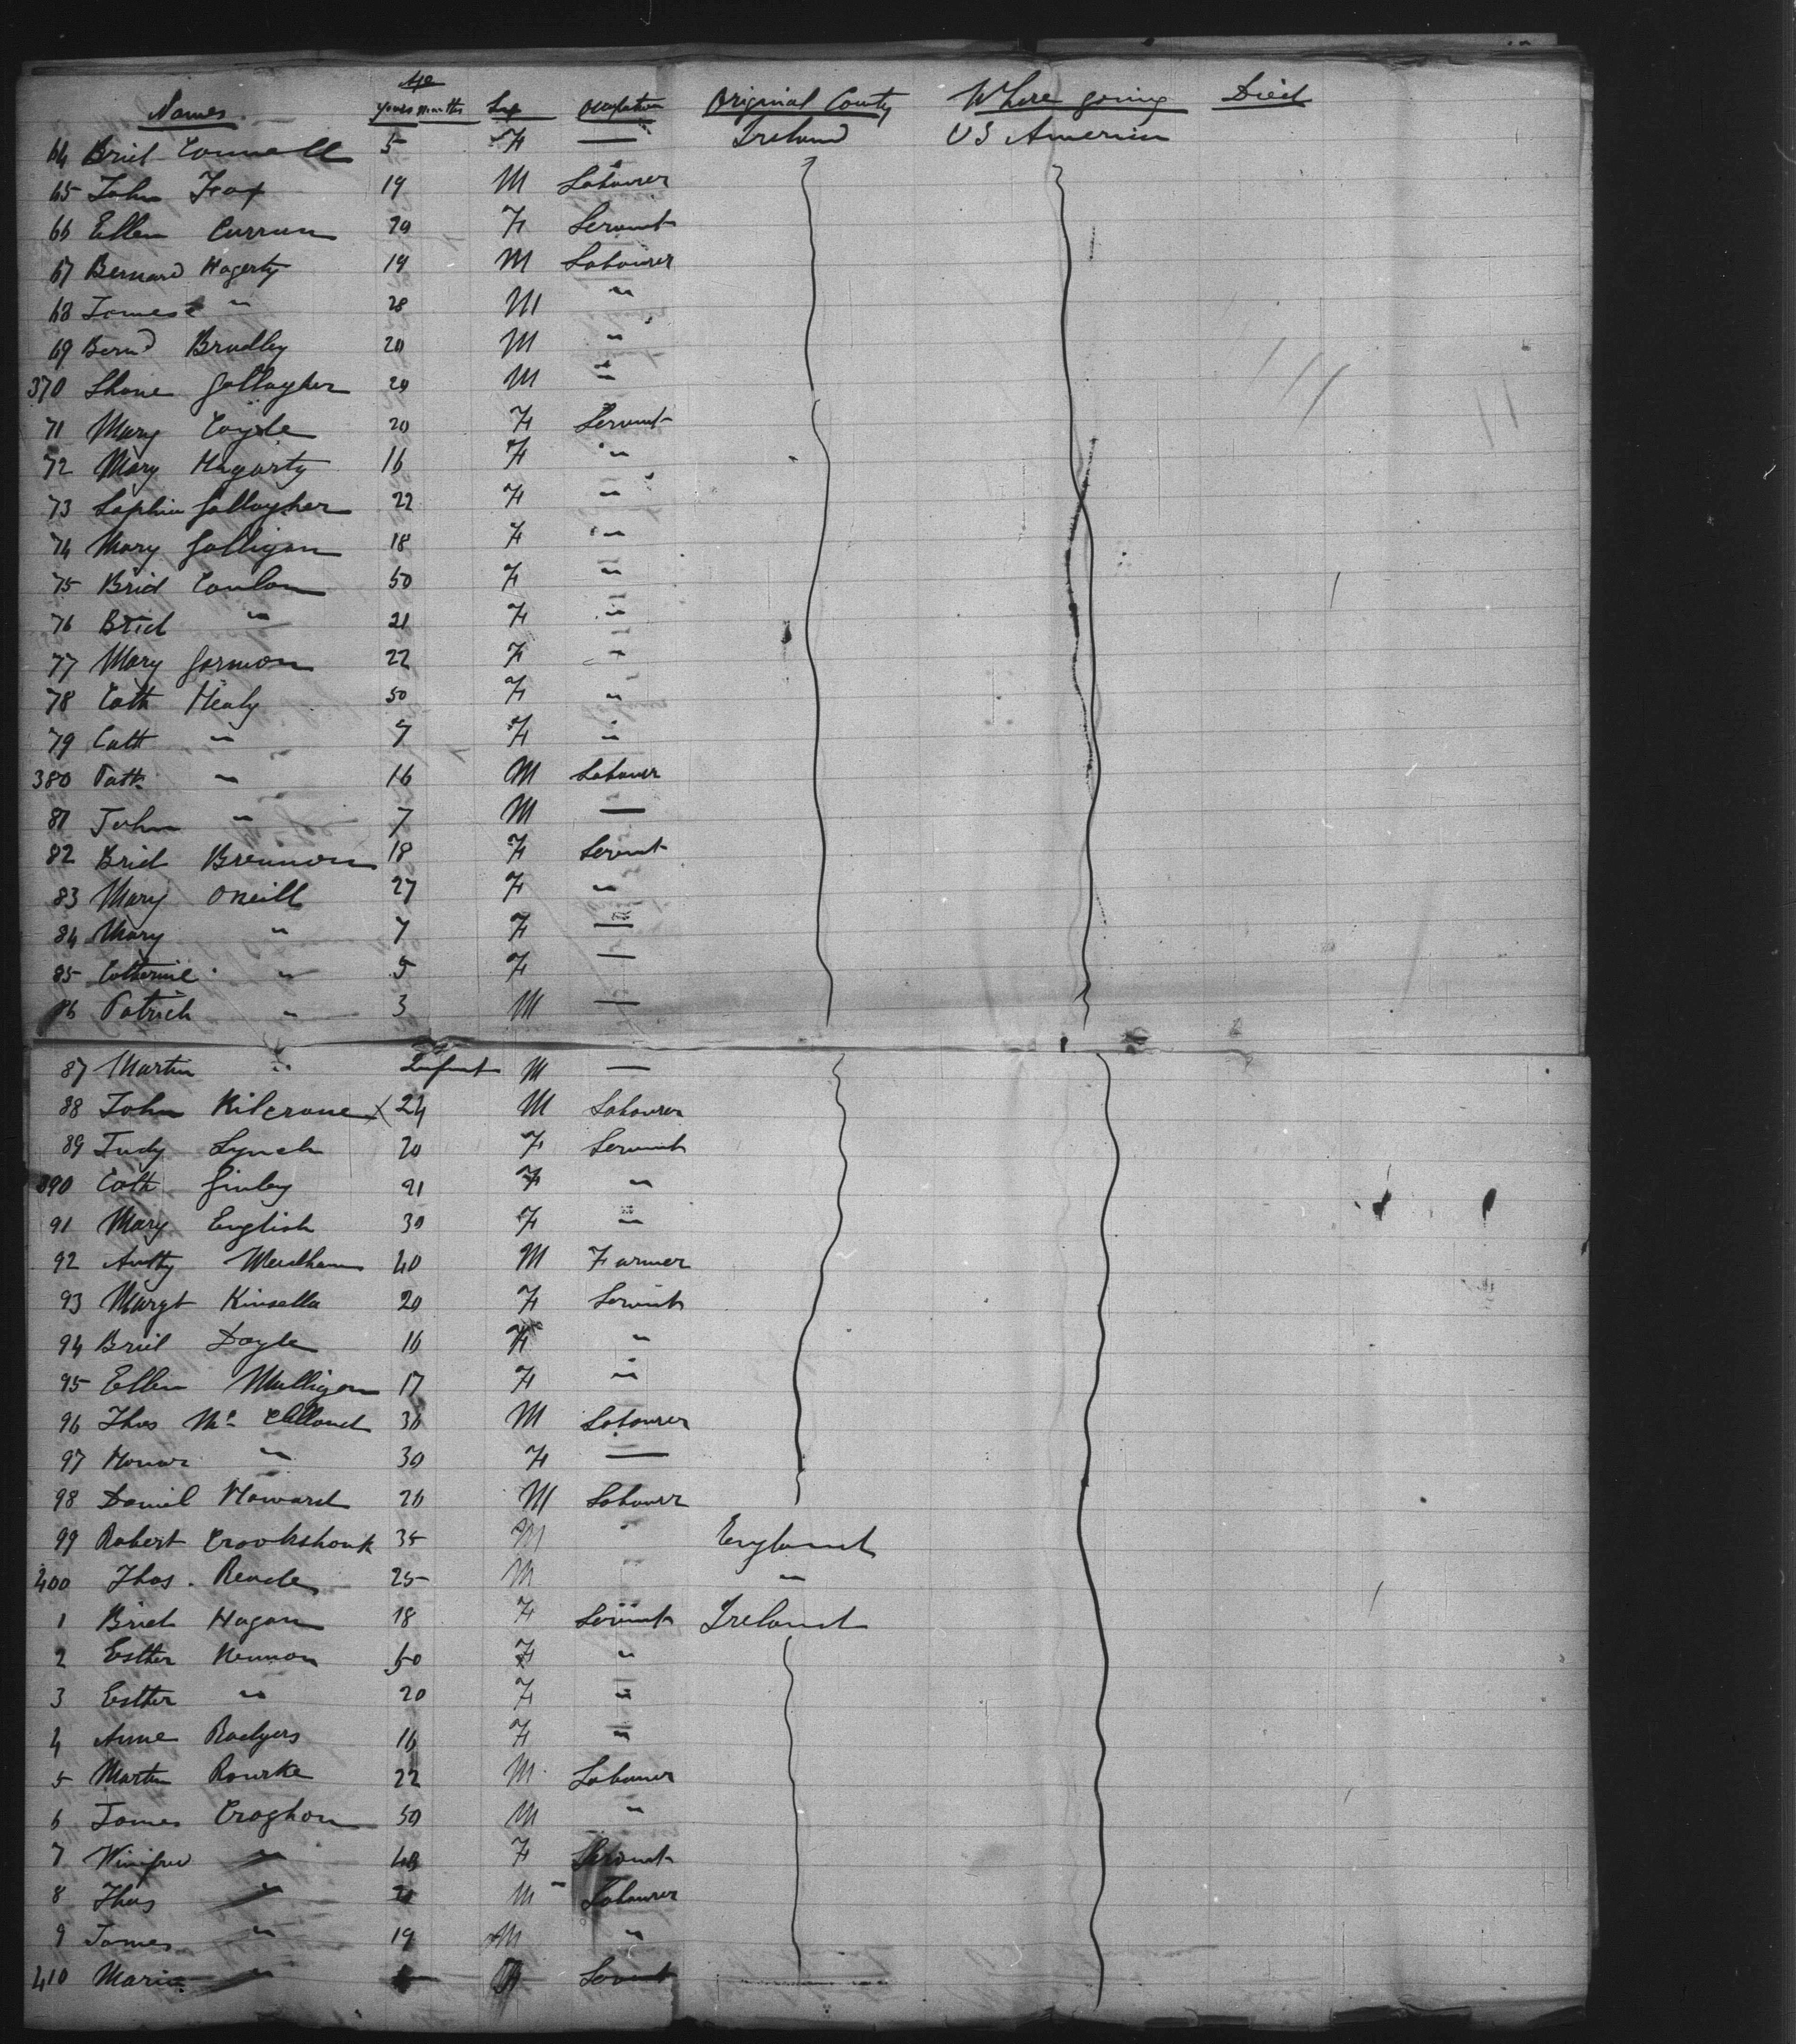 Age
Names years months Sex Occupation Original County Where going Died
64 Brid Connell 5 F — Ireland US America
65 John Fox 19 M Labourer
66 Ellen Curran 20 F Servant
67 Bernard Hagerty 19 M Labourer
68 James " 28 M "
69 Bernd Bradley 20 M "
370 Shane Gallagher 20 M "
71 Mary Coyle 20 F Servant
72 Mary Hagarty 16 F "
73 Sophia Gallagher 22 F "
74 Mary Galligan 18 F "
75 Brid Conlon 50 F "
76 Brid " 21 F "
77 Mary Gormon 22 F "
78 Cath Healy 50 F "
79 Cath " 9 F "
380 Patk " 16 M Labourer
81 John " 7 M —
82 Brid Brennon 18 F Servant
83 Mary Oneill 27 F "
84 Mary " 7 F —
85 Catherine " 5 F —
86 Patrick " 3 M —
87 Martin " Infant M —
88 John Kilcrane X 24 M Labourer
89 Judy Lynch 20 F Servant
390 Cath Ginley 21 F "
91 Mary English 30 F "
92 Antty 40 M Farmer
93 Margt Kinsella 20 F Servant
94 Brid Doyle 16 F "
95 Ellen Mulligan 17 F "
96 Thos Mc Clelland 36 M Labourer
97 Honor " 30 F —
98 Daniel Howard 26 M Labourer
99 Robert Crookshank 35 M " England
400 Thos. Reade 25 M "
1 Brid Hagan 18 F Servant Ireland
2 Esther Kennon 50 F "
3 Esther " 20 F "
4 Anne Rodgers 16 F "
5 Martin Rourke 22 M Labourer
6 James Croghan 50 M "
7 Winifred " 48 F Servant
8 Thos " 21 M Labourer
9 James " 19 M "
410 Maria " F Servant